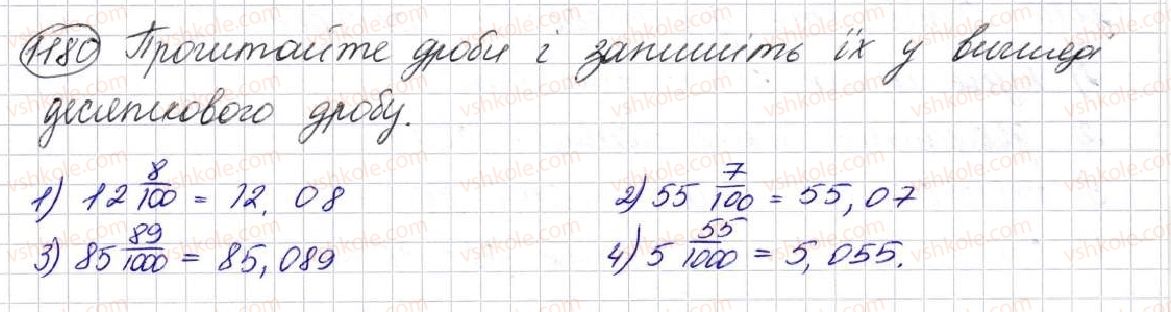 1180 Прочитайте дроби і запишіть їх у вигляді
десяткового дробу.
1) 12 8/100 = 12,08 2) 55 7/100 = 55,07
3) 85 89/1000 = 85,089 4) 5 55/1000 = 5,055.